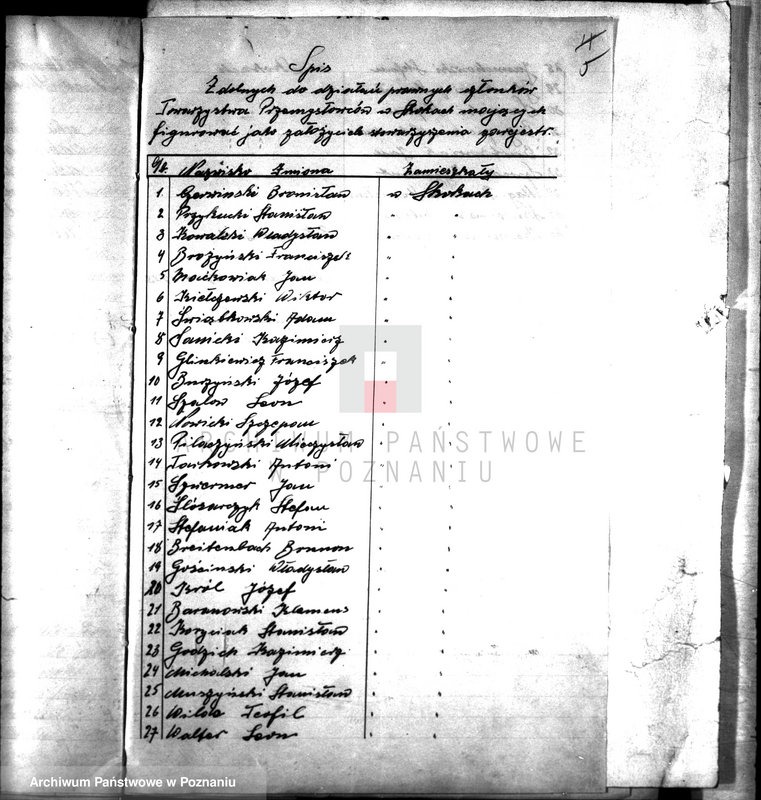 4
5
Spis
Zdolnych do działań prawnych członków
Towarzystwa Przemysłowców w Skokach mających
figurować jako założyciele stowarzyszenia zarejestr.
Nazwisko Imiona Zamieszkały
1. Czerwinski Bronisław w Skokach
2 Przykucki Stanisław " "
3 Kowalski Władysław " "
4 Brożyński Franciszek " "
5 Maćkowiak Jan " "
6 Kiełczewski Wiktor " "
7 Świątkowski Adam " "
8 Sanicki Kazimierz " "
9 Glinkiewicz Franciszek " "
10 Burzyński Józef " "
11 Szalow Leon " "
12 Nowicki Szczepan " "
13 Pilaczyński Mieczysław " "
14 Tarkowski Antoni " "
15 Szwermer Jan " "
16 Ślósarczyk Stefan " "
17 Stefaniak Antoni " "
18 Breitenbach Brunon " "
19 Gościnski Władysław " "
20 Król Józef " "
21 Baranowski Klemens " "
22 Korzeniak Stanisław " "
23 Godzich Kazimierz " "
24 Michalski Jan " "
25 Muszyński Stanisław " "
26 Wilda Teofil " "
27 Walter Leon " "
ARCHIWUM PAŃSTWOWE
W POZNANIU
Archiwum Państwowe w Poznaniu